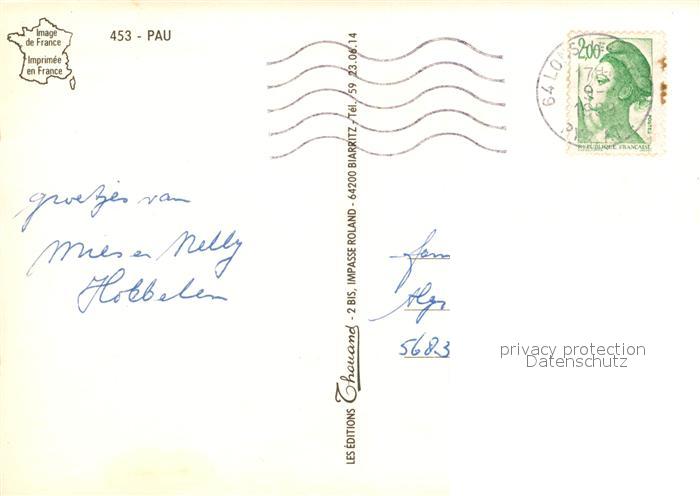 Image
de France
Imprimée
en France
453 - PAU
groetjes van
Mies en Nelly
Hobbelen
LES ÉDITIONS Thouand - 2 BIS, IMPASSE ROLAND - 64200 BIARRITZ - Tél. 59 23.06.14
64 LONS
2,00
POSTES
REPUBLIQUE FRANÇAISE
fam
5683
privacy protection
Datenschutz